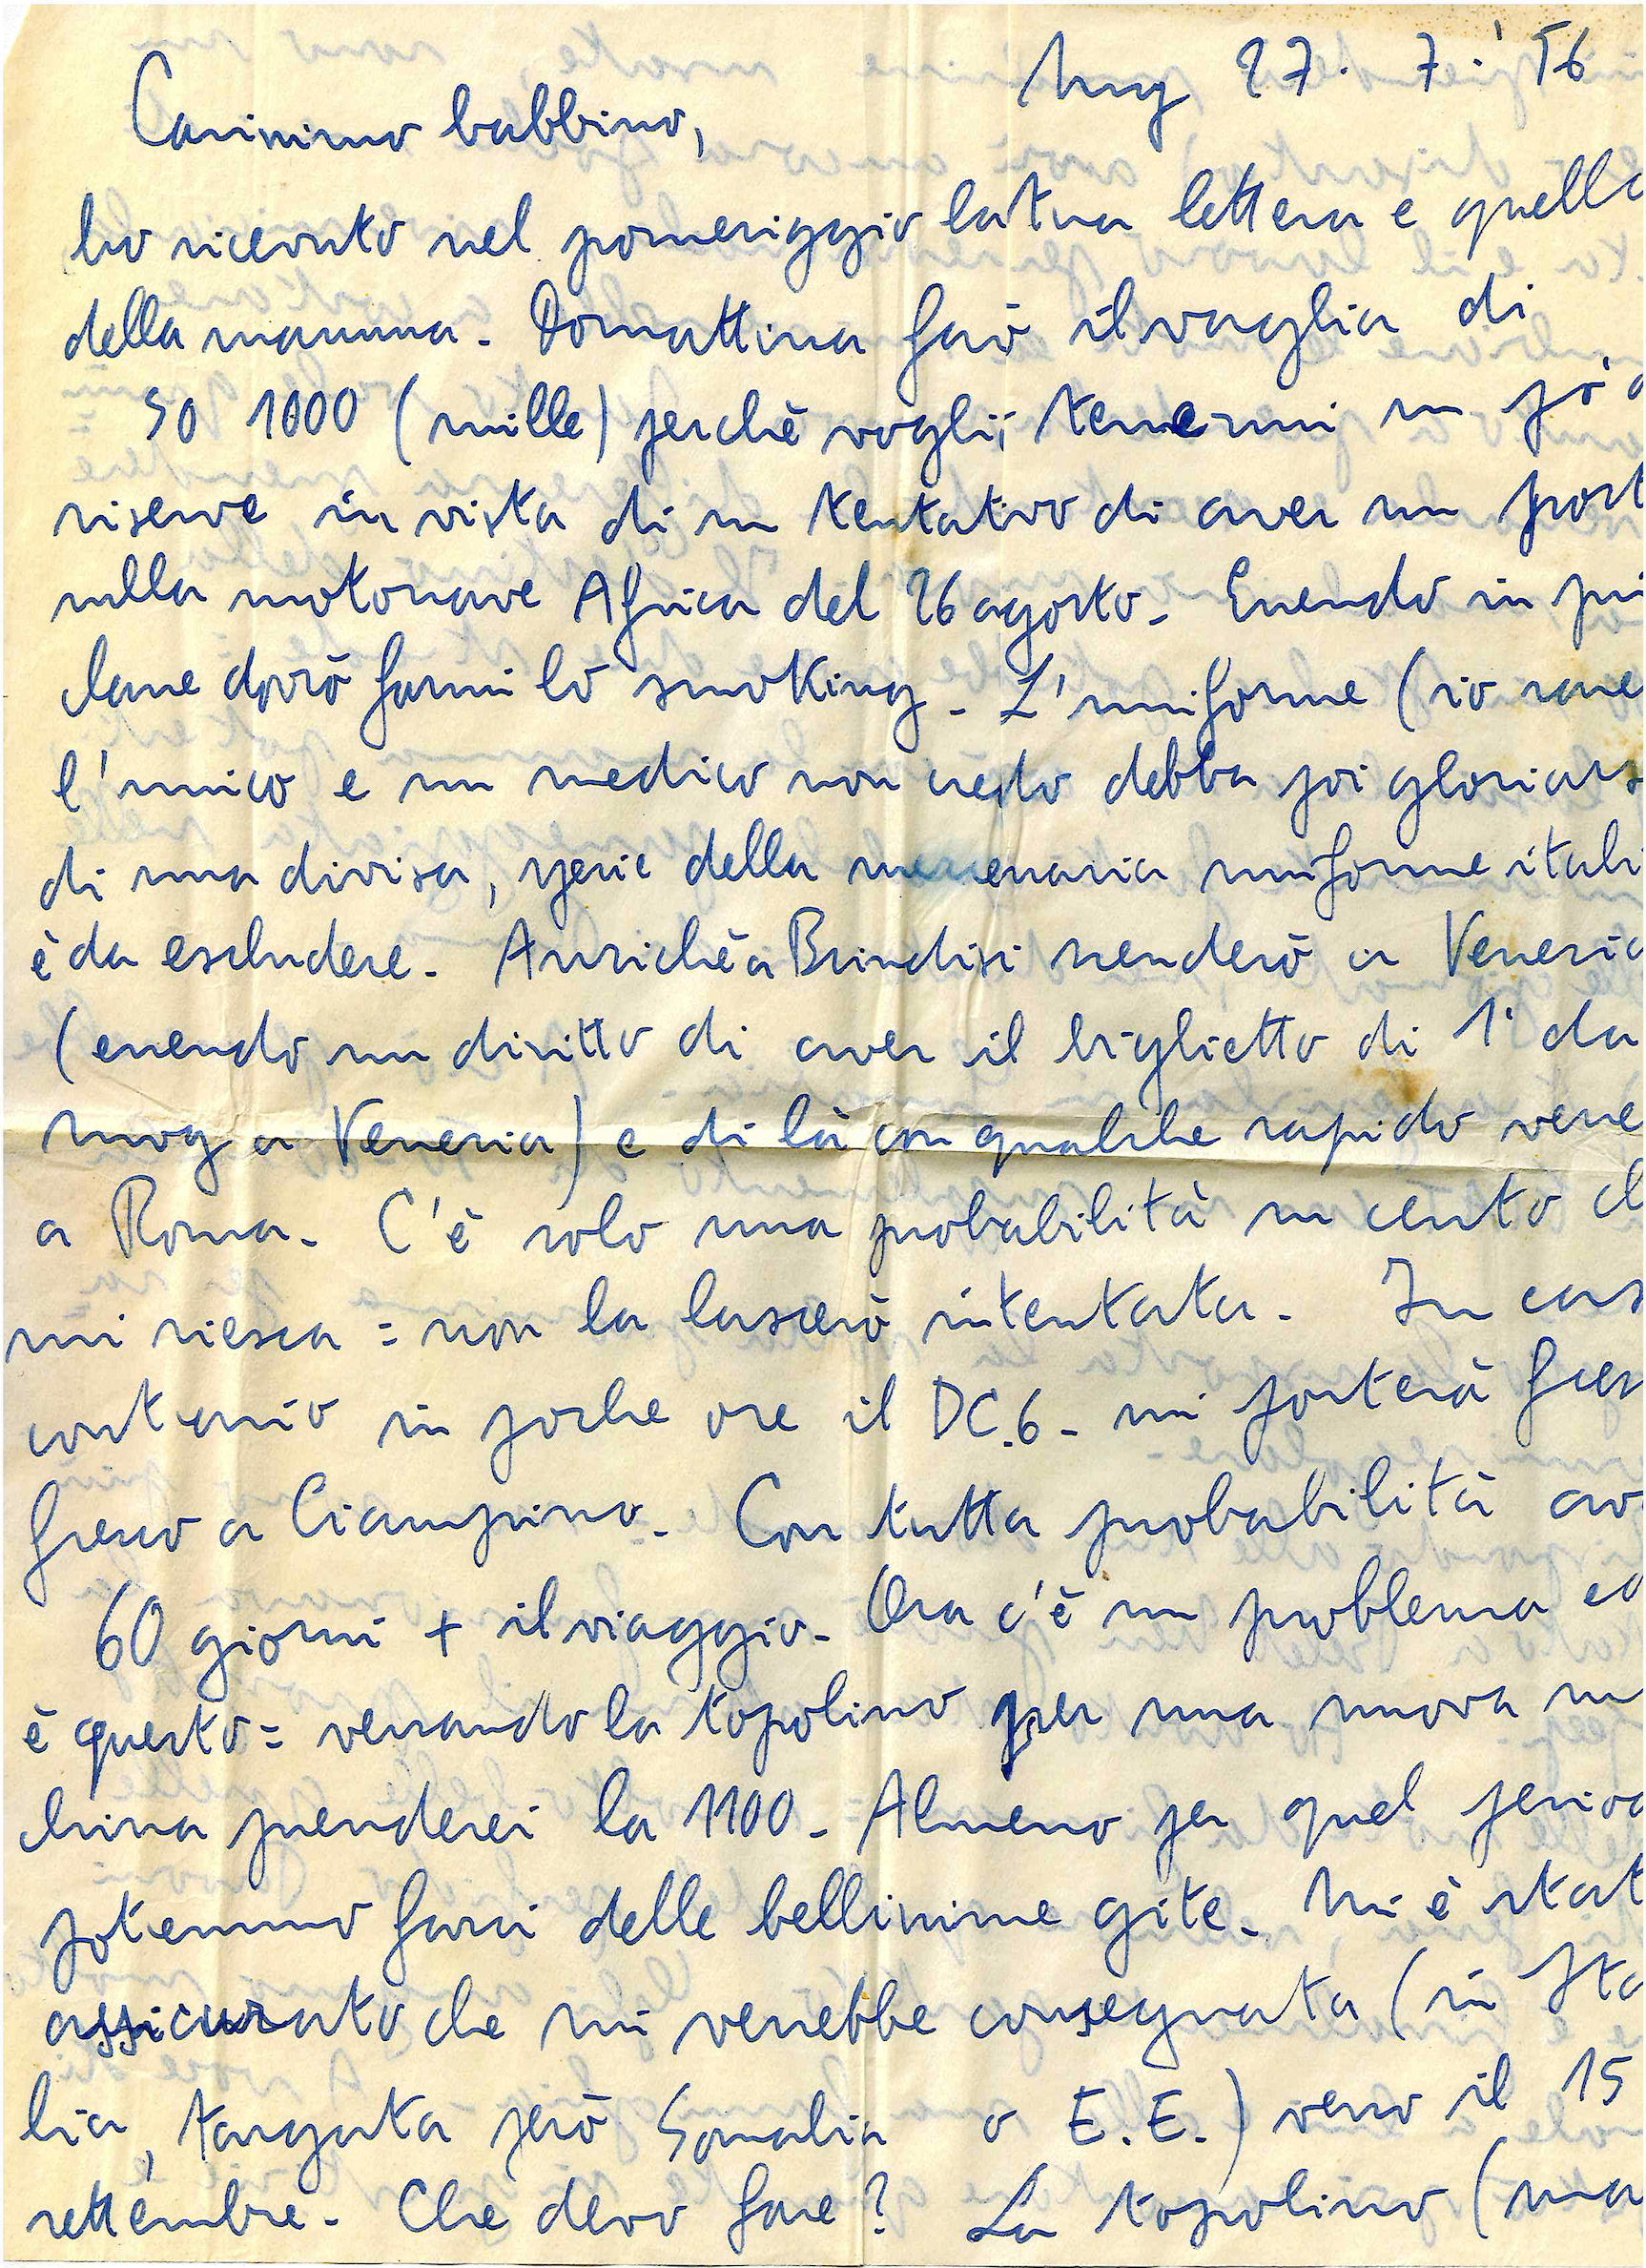 Mog 27. 7.' 56
Carissimo babbino,
ho ricevuto nel pomeriggio la tua lettera e quella
della mamma. Domattina farò il vaglia di
So 1000 (mille) perchè voglio tenermi un po'
riserve in vista di un tentativo di aver un post
sulla motonave Africa del 26 agosto. Essendo in pri
classe dovrò farmi lo smoking. L'uniforme (io sarei
l'unico e un medico non credo debba poi gloriars
di una divisa, specie della mercenaria uniforme itali
è da escludere. Anzichè a Brindisi scenderò a Venezia
(essendo un diritto di aver il biglietto di 1ª da
mog a Venezia) e di là con qualche rapido verre
a Roma. C'è solo una probabilità su cento ch
mi riesca = non la lascerò intentata. In cas
contrario in poche ore il DC.6. mi porterà fres
fresco a Ciampino. Con tutta probabilità avr
60 giorni + il viaggio. Ora c'è un problema ed
è questo = versando la topolino per una nuova m
china prenderei la 1100. Almeno per quel period
potremmo farci delle bellissime gite. Mi è stat
assicurato che mi verrebbe consegnata (in Ita
lia, targata però Somalia o E.E.) verso il 15
settembre. Che devo fare? La topolino (ma